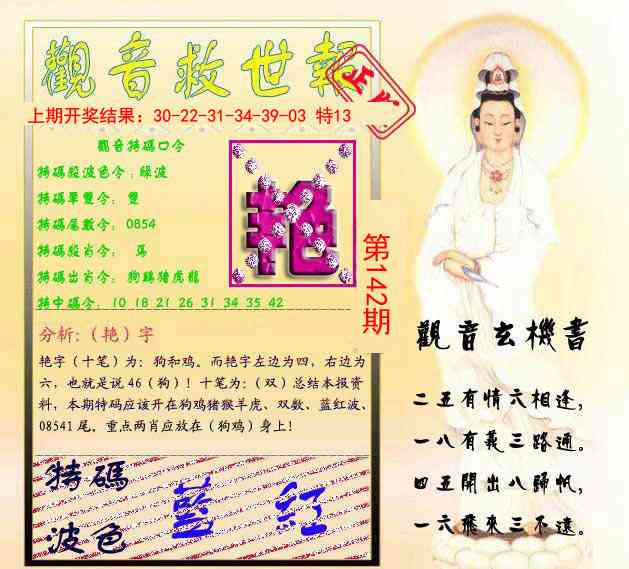 觀音救世報
正
上期开奖结果：30-22-31-34-39-03 特13
觀音特碼口令
特碼殺波色令：綠波
特碼單雙令： 雙
特碼尾數令： 0854
特碼殺肖令： 馬
特碼出肖令： 狗鷄猪虎龍
特中碼令： 10 18 21 26 31 34 35 42
艳
第142期
分析：（艳）字
艳字（十笔）为：狗和鸡。而艳字左边为四，右边为
六，也就是说46（狗）！十笔为：（双）总结本报资
料，本期特码应该开在狗鸡猪猴羊虎、双数、蓝红波、
08541尾。重点两肖应放在（狗鸡）身上！
特碼
波色
藍 紅
觀音玄機書
二五有情六相逢，
一八有義三路通。
四五開出八歸帆，
一六飛來三不遠。